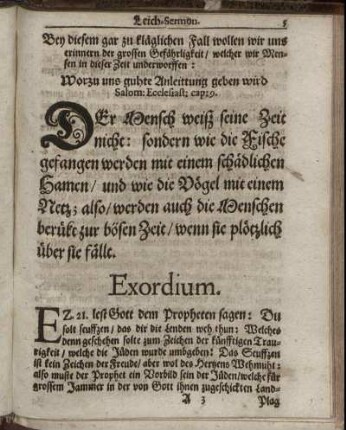 Leich-Sermon. 5
Bey diesem gar zu kläglichen Fall wollen wir uns
erinnern der grossen Gefährligkeit / welcher wir Men-
sen in dieser Zeit underworffen :
Worzu uns guhte Anleittung geben wird
Salom: Ecclesiast; cap: 9.
DEr Mensch weiß seine Zeit
nicht: sondern wie die Fische
gefangen werden mit einem schädlichen
Hamen / und wie die Vögel mit einem
Netz; also / werden auch die Menschen
berükt zur bösen Zeit / wenn sie plötzlich
über sie fälle.
Exordium.
EZ 21. lest Gott dem Propheten sagen: Du
solt seuffzen / das dir die Lenden weh thun: Welches
denn geschehen solte zum Zeichen der künfftigen Trau-
rigkeit / welche die Jüden wurde umbgeben: Das Seuffzen
ist kein Zeichen der Freude / aber wol des Hertzens Wehmuht:
also muste der Prophet ein Vorbild sein der Jüden / welche für
grossem Jammer in der von Gott ihnen zugeschickten Land-
A 3 Plag